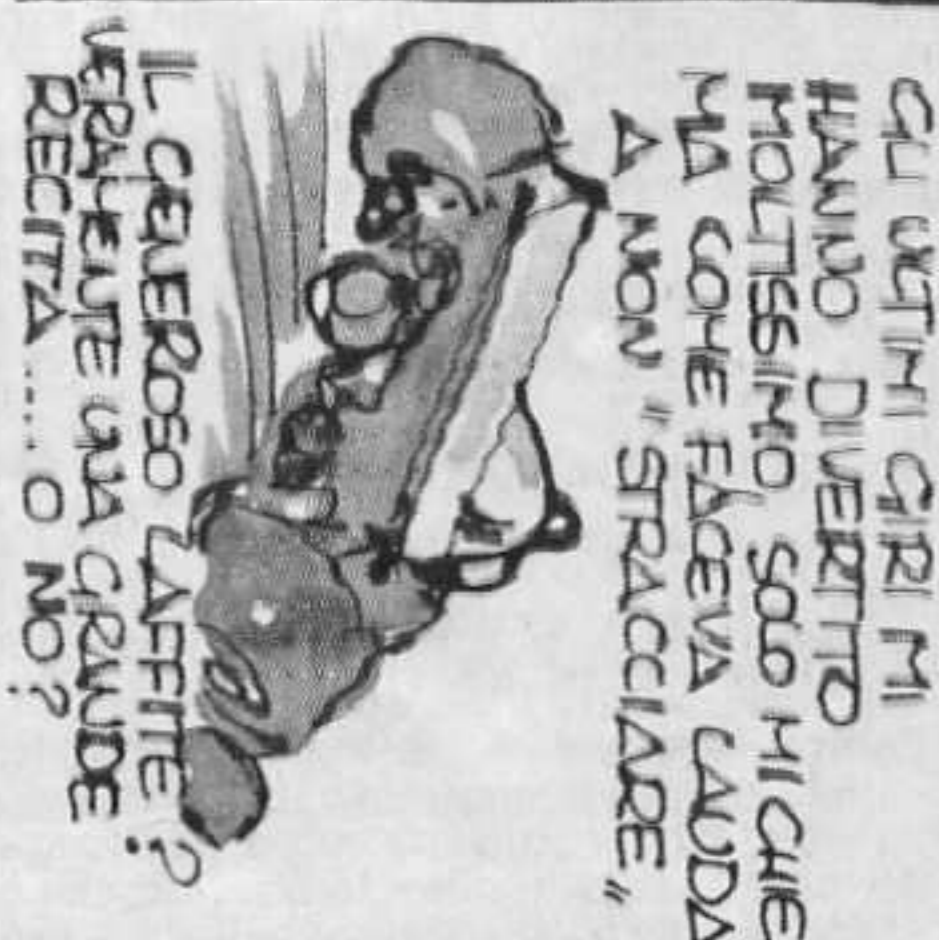 GLI ULTIMI GIRI MI
HANNO DIVERTITO
MOLTISSIMO SOLO MI CHIE
MA COME FACEVA LAUDA
A NON "STRACCIARE"
IL GENEROSO LAFFITE?
VERAMENTE UNA GRANDE
RECITA.... O NO?